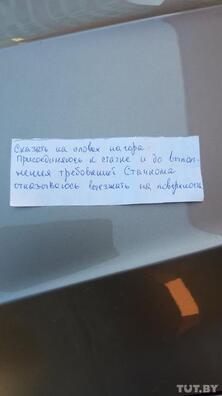 Сказать на словах на гора.
Присоединяюсь к стачке и до выпол-
нения требований Стачкома
отказываюсь выезжать на поверхность
TUT.BY